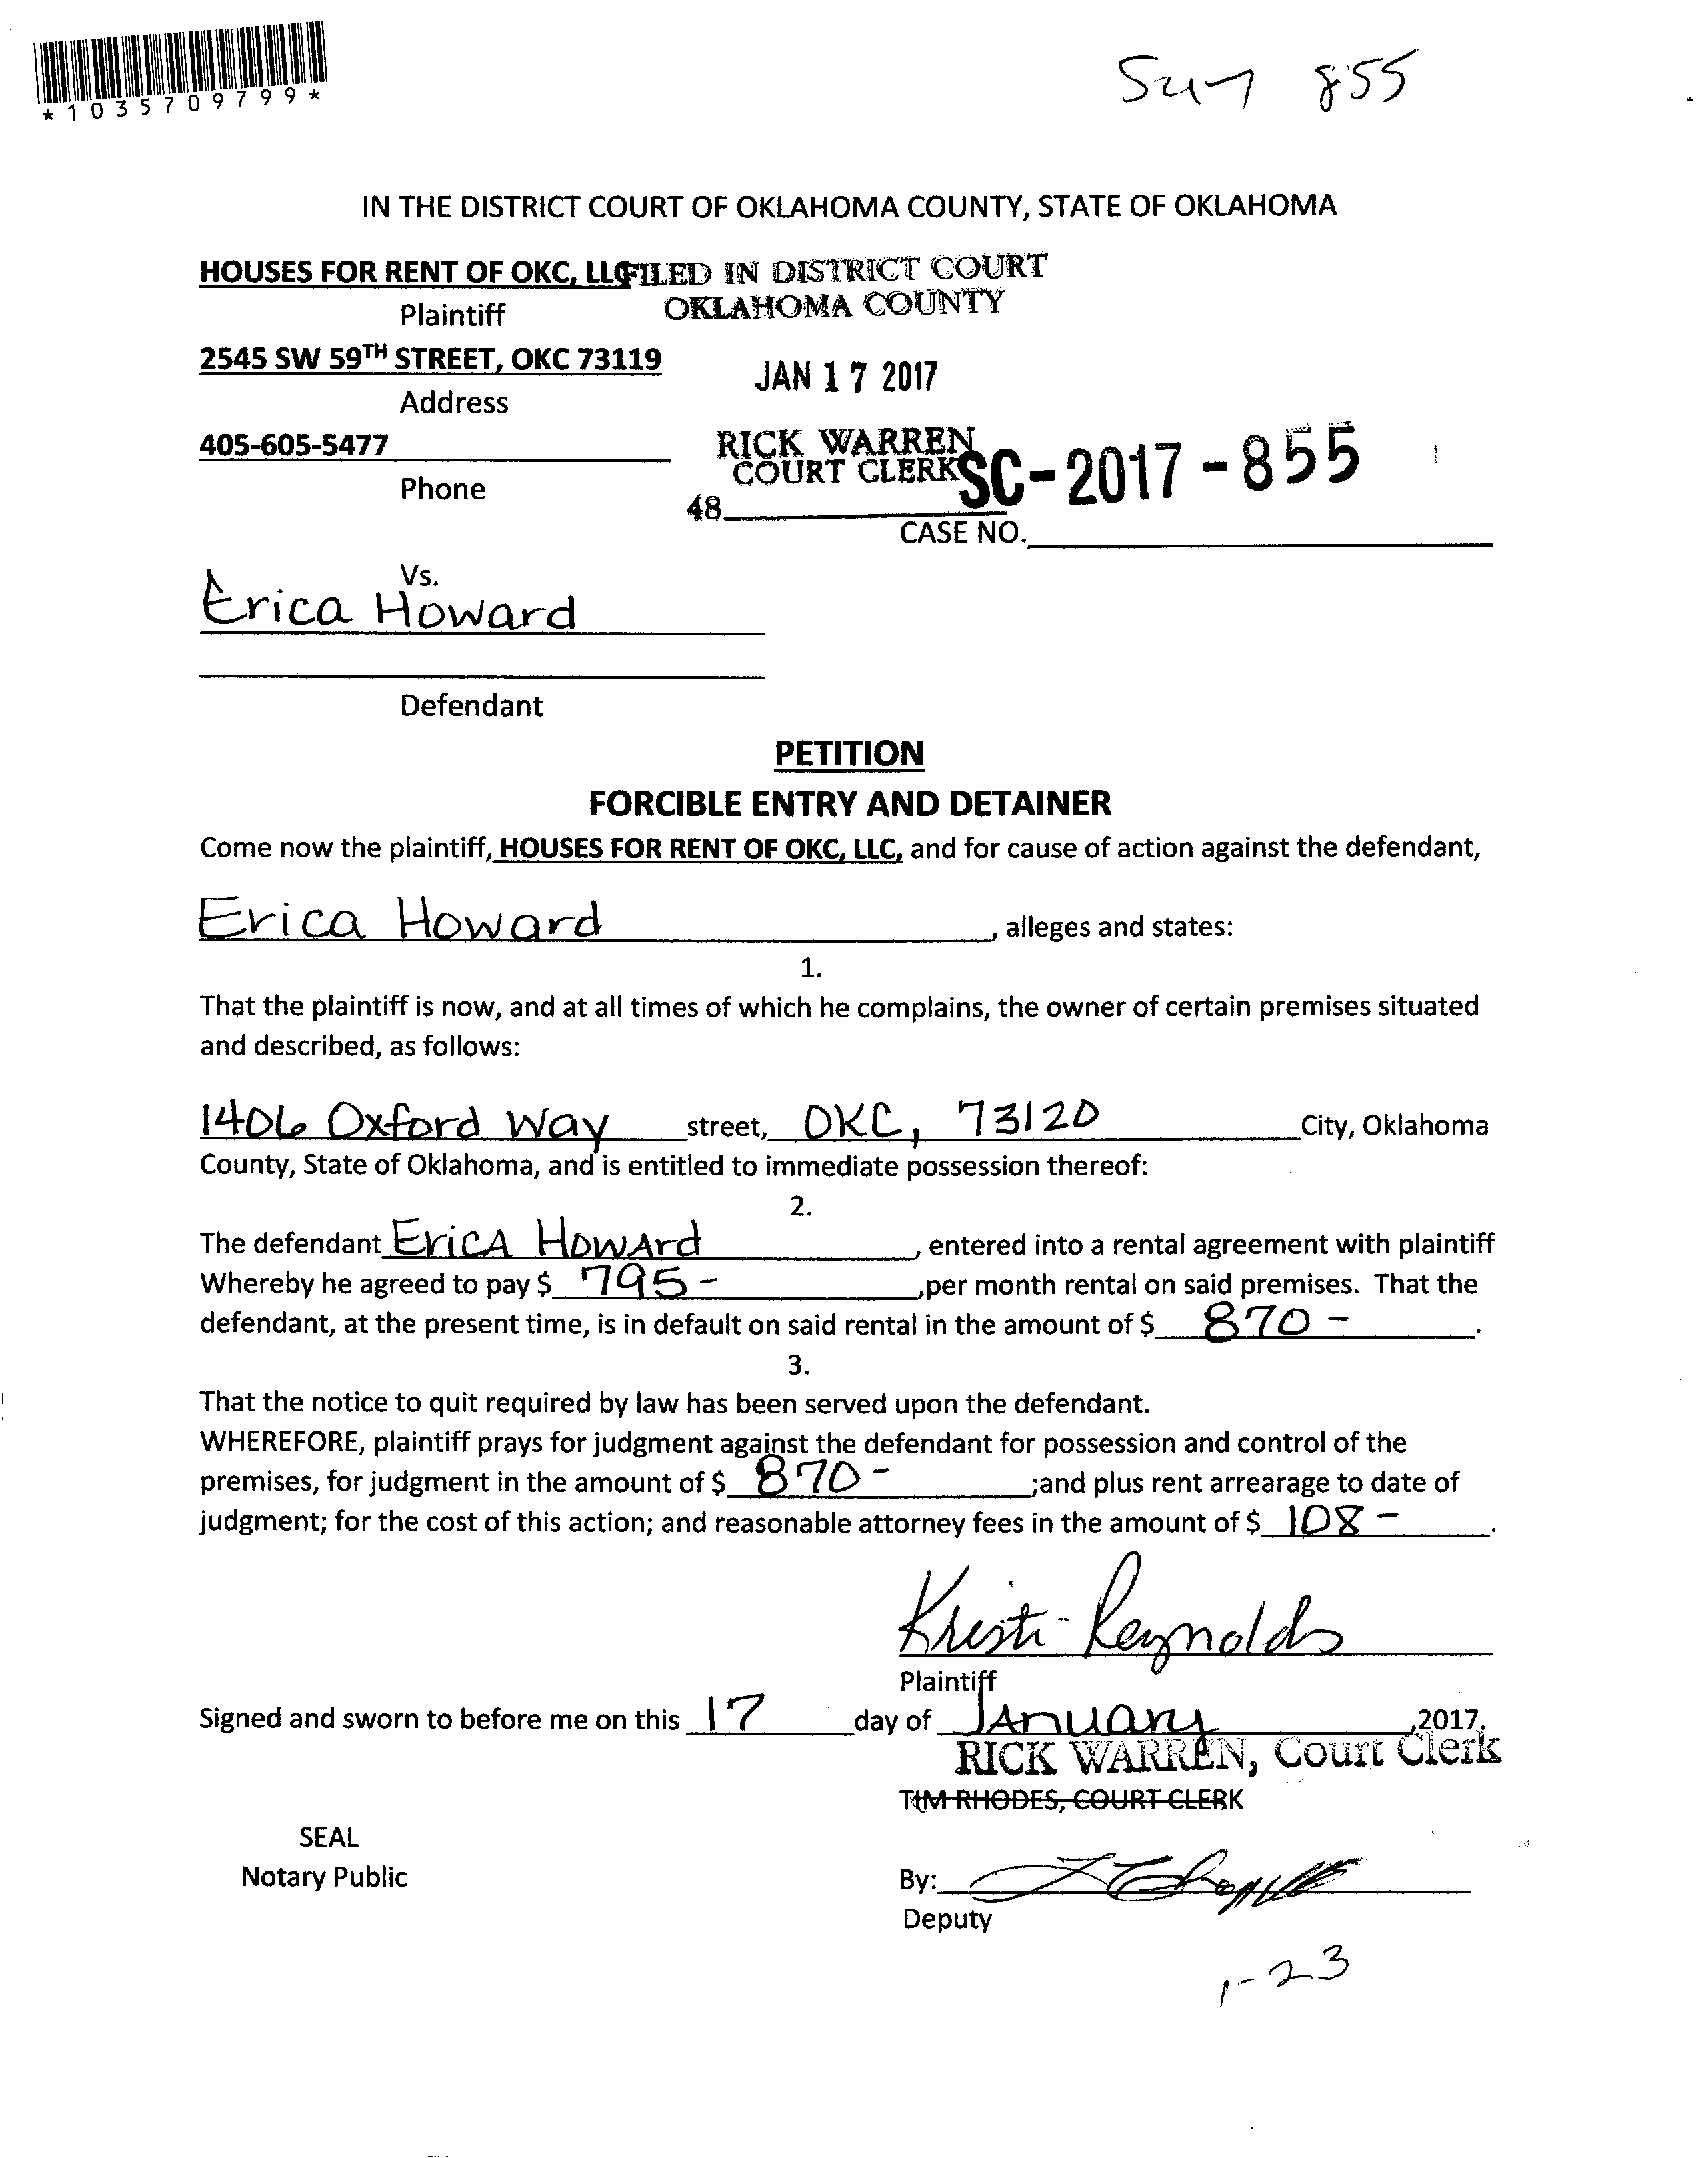 *1035709799*
855
IN THE DISTRICT COURT OF OKLAHOMA COUNTY, STATE OF OKLAHOMA
HOUSES FOR RENT OF OKC, LLC FILED IN DISTRICT COURT
Plaintiff OKLAHOMA COUNTY
2545 SW 59TH STREET, OKC 73119
JAN 17 2017
Address
405-605-5477 RICK WARREN
COURT CLERK SC-2017-855
Phone
48
CASE NO.
Vs.
Erica Howard
Defendant
PETITION
FORCIBLE ENTRY AND DETAINER
Come now the plaintiff, HOUSES FOR RENT OF OKC, LLC, and for cause of action against the defendant,
Erica Howard, alleges and states:
1.
That the plaintiff is now, and at all times of which he complains, the owner of certain premises situated
and described, as follows:
1406 Oxford Way street, OKC, 73120 City, Oklahoma
County, State of Oklahoma, and is entitled to immediate possession thereof:
2.
The defendant Erica Howard, entered into a rental agreement with plaintiff
Whereby he agreed to pay $ 795- ,per month rental on said premises. That the
defendant, at the present time, is in default on said rental in the amount of $ 870 - .
3.
That the notice to quit required by law has been served upon the defendant.
WHEREFORE, plaintiff prays for judgment against the defendant for possession and control of the
premises, for judgment in the amount of $ 870- ;and plus rent arrearage to date of
judgment; for the cost of this action; and reasonable attorney fees in the amount of $ 108 - .
Kristi Reynolds
Plaintiff
Signed and sworn to before me on this 17 day of January ,2017.
RICK WARREN, Court Clerk
TIM RHODES, COURT CLERK
SEAL
Notary Public
By:
Deputy
1-23